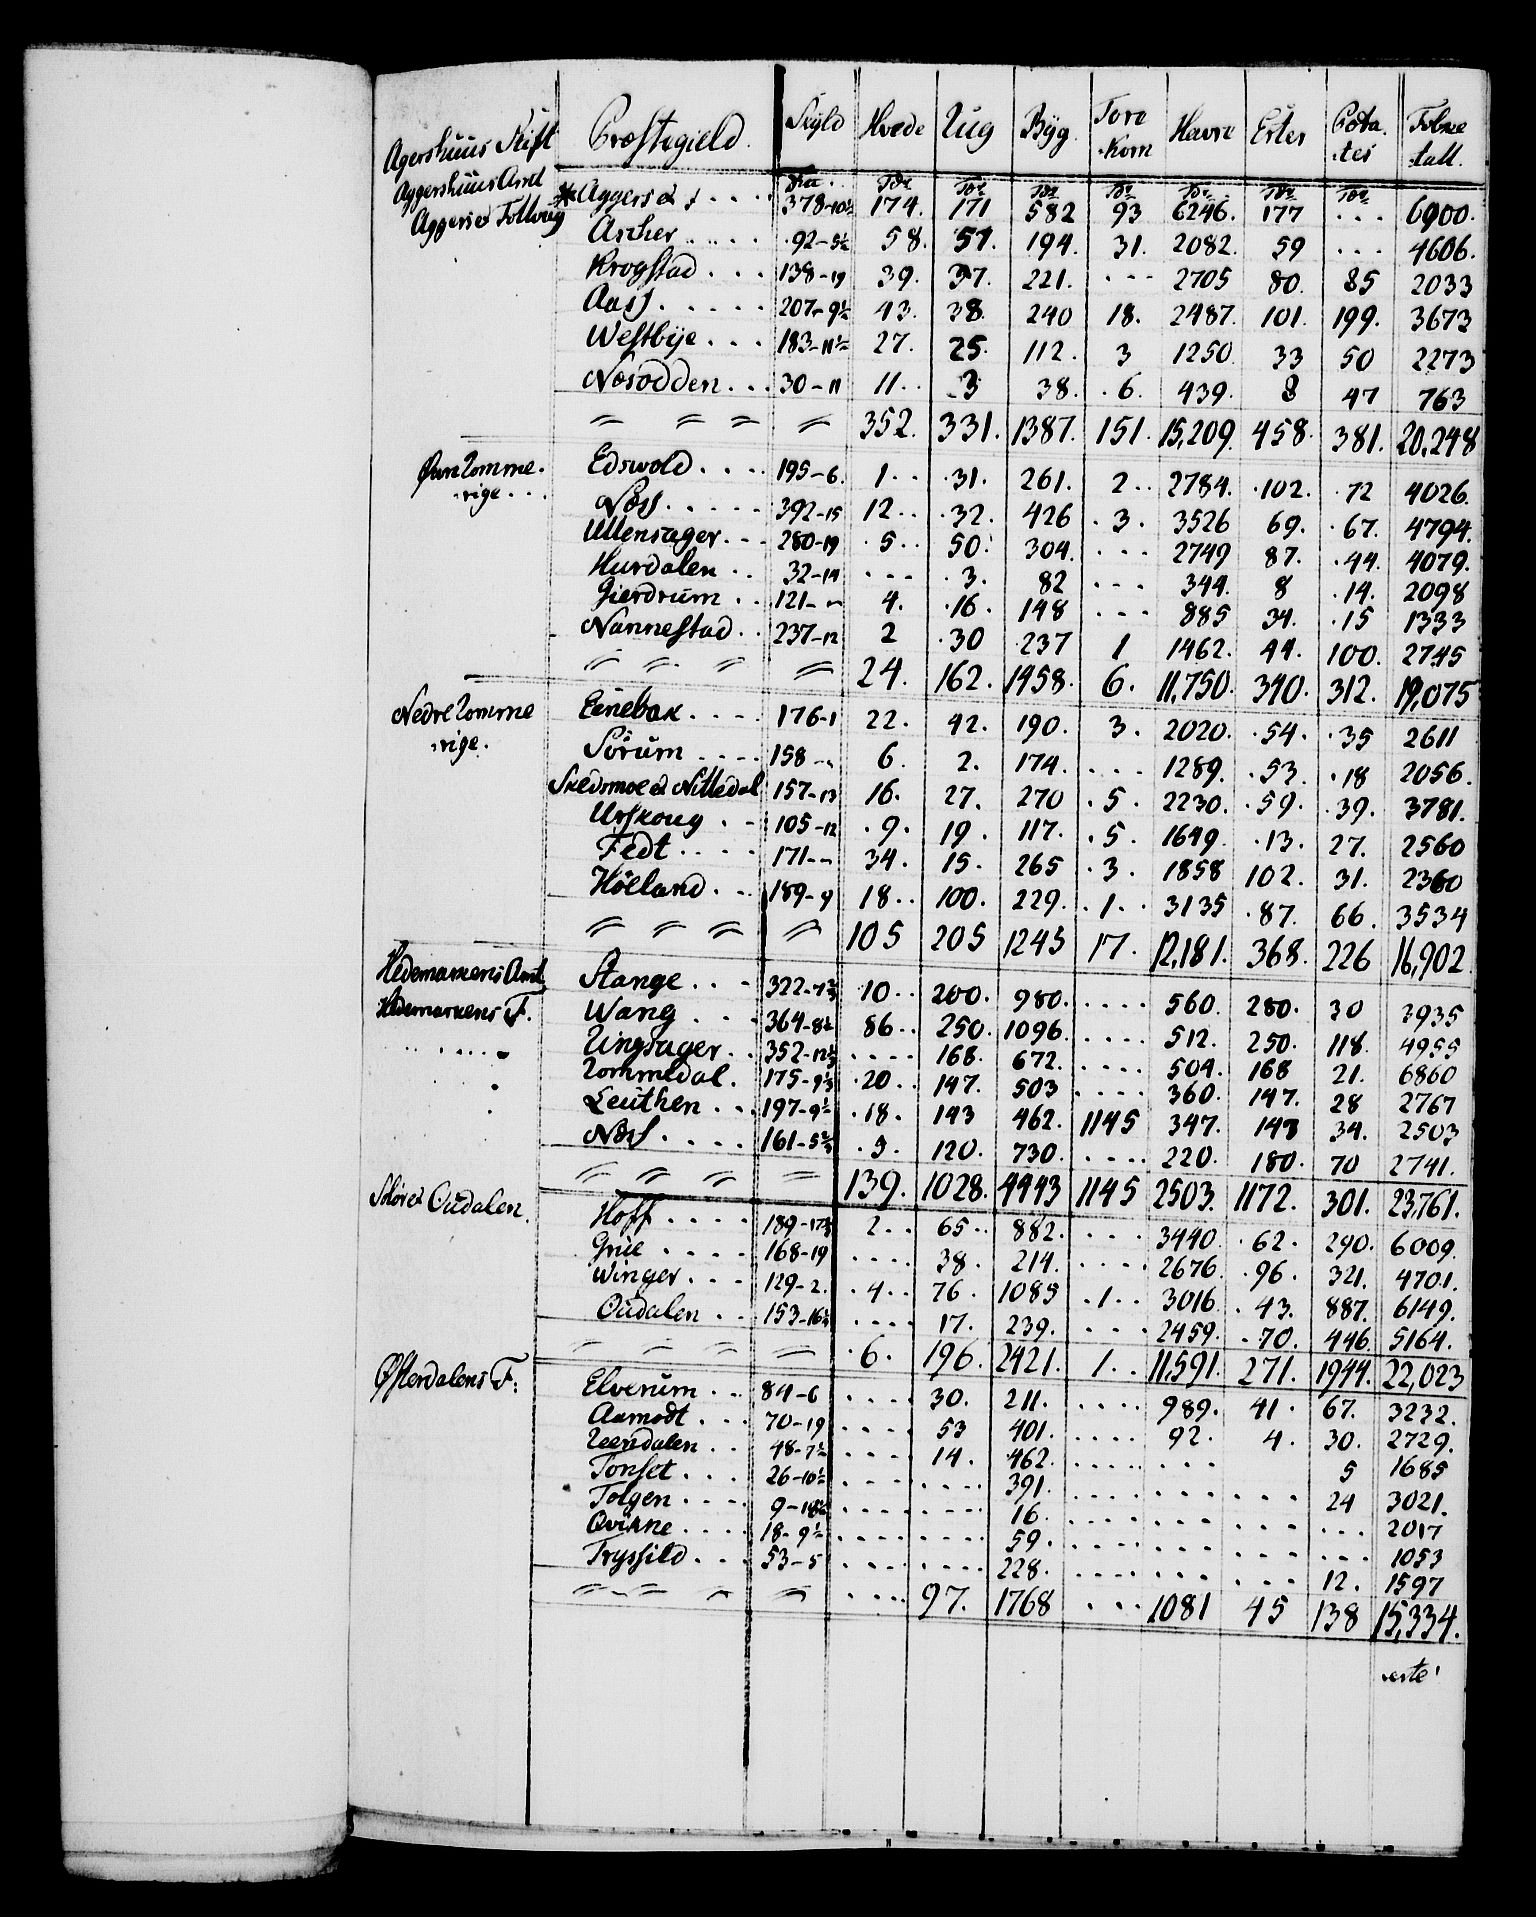 Agershuus Stift Præstegield. Skyld Hvede Rug Byg. Tore Korn Havre Erter Pota tes Folke tall.
Aggershuus Amt
Aggers Foltrug
* Aggers d ... 378-10½ 174. 171 582 93 6246. 177 ... 6900.
Ascher .... 92-5½ 58. 57. 194. 31. 2082. 59 ... 4606.
Krogstad ... 138-19 39. 37. 221. ... 2705 80. 85 2033
Aass .... 207-9½ 43. 38. 240 18. 2487. 101. 199. 3673
Westbye ... 183-11½ 27. 25. 112. 3 1250 33 50 2273
Næsodden ... 30-11 11.. 3 38. .6. 439. 8 47 763
〃 〃 〃 〃 352. 331. 1387. 151. 15,209. 458. 381. 20,248
Øvre Romme. rige...
Edswold .... 195-6. 1.. .31. 261. 2.. 2784. .102. .72 4026.
Næs ..... 392-15 12.. .32. 426 .3. 3526 69. .67. 4794.
Ullensager... 280-19 .5.. 50. 304. ... 2749 87. .44. 4079.
Hurdalen .. 32-14 ... .3. 82 ... 344. 8 .14. 2098
Gierdrum .. 121-〃 4. .16. 148 ... 885 34. .15 1333
Nannestad.. 237-12 2 .30 .237 1 1462. 44. 100. 2745
〃 〃 〃 〃 24. 162. 1458. 6. 11,750. 340. 312. 19,075
Nedre Romme rige.
Eenebak .... 176-1 22. 42. 190. 3. 2020. .54. .35 2611
Sörum .... 158-〃 6. 2. 174. .... 1289. .53. .18 2056.
Skedsmoe & Nittedal 157-13 16. 27. 270 .5. 2230. .59. .39. 3781.
Urskoug .. 105-12 .9. 19. 117. .5. 1649. .13. 27. 2560
Fedt .... 171-〃 34. 15. 265 .3. 1858 102. 31. 2360
Höeland ... 189-9 18.. 100. 229. .1.. 3135 .87. 66. 3534
〃 〃 〃 〃 105 205 1245 17. 12,181. 368. 226 16,902
Hedemarkens Amt
Hedemarkens F.
Stange ... 322-7⅔ 10.. 200. 980. .... 560. 280. 30 3935
Wang ... 364-8½ 86.. 250. 1096. .... 512. 250. 118. 4955
Ringsager.. 352-12⅓ .... 168. 672. .... 504. 168 21. 6860
Rommedal. 175-9⅓ .20.. 147. 503 .... 360. 147. 28 2767
Leuthen ... 197-9½ .18. 143 462. 1145 347. 147 34. 2503
Næss .... 161-5⅔ .5. 120. 730. .... 220. 180. 70 2741.
〃 〃 〃 〃 139. 1028. 4443 1145 2503. 1172. 301. 23,761.
Solør & Oudalen.
Hoff .... 189-17⅔ 2.. 65.. 882. ... 3440. .62. 290. 6009.
Grue .... 168-19 .... 38. 214. .... 2676. .96. 321. 4701.
Winger ... 129-2. .4.. 76. 1085 .1.. 3016. .43. 887. 6149.
Oudalen .. 153-16½ .... 17. 239. ... 2459. .70. 446. 5164.
〃 〃 〃 〃 .6. 196. 2421. 1.. 11,591. 271. 1944. 22,023
Østerdalens F:
Elverum .. 84-6 .... 30. 211. .... 989. 41. 67. 3232.
Aamodt ... 70-19 .... 53 401. .... 92. 4. 30. 2729.
Reendalen .. 48-7½ .... 14. 462. .... ... 5 1685
Tonset ... 26-10½ .... .... 391. .... .... ... 24 3021.
Tolgen .... 9-18½ .... .... 16. .... .... ... ... 2017
Qvikne .... 18-9½ .... .... 59. .... .... ... ... 1053
Tryssild ... 53-5 .... .... 228. .... .... ... 12. 1597
〃 〃 〃 〃 .... 97. 1768 ... 1081 45 138 15,334.